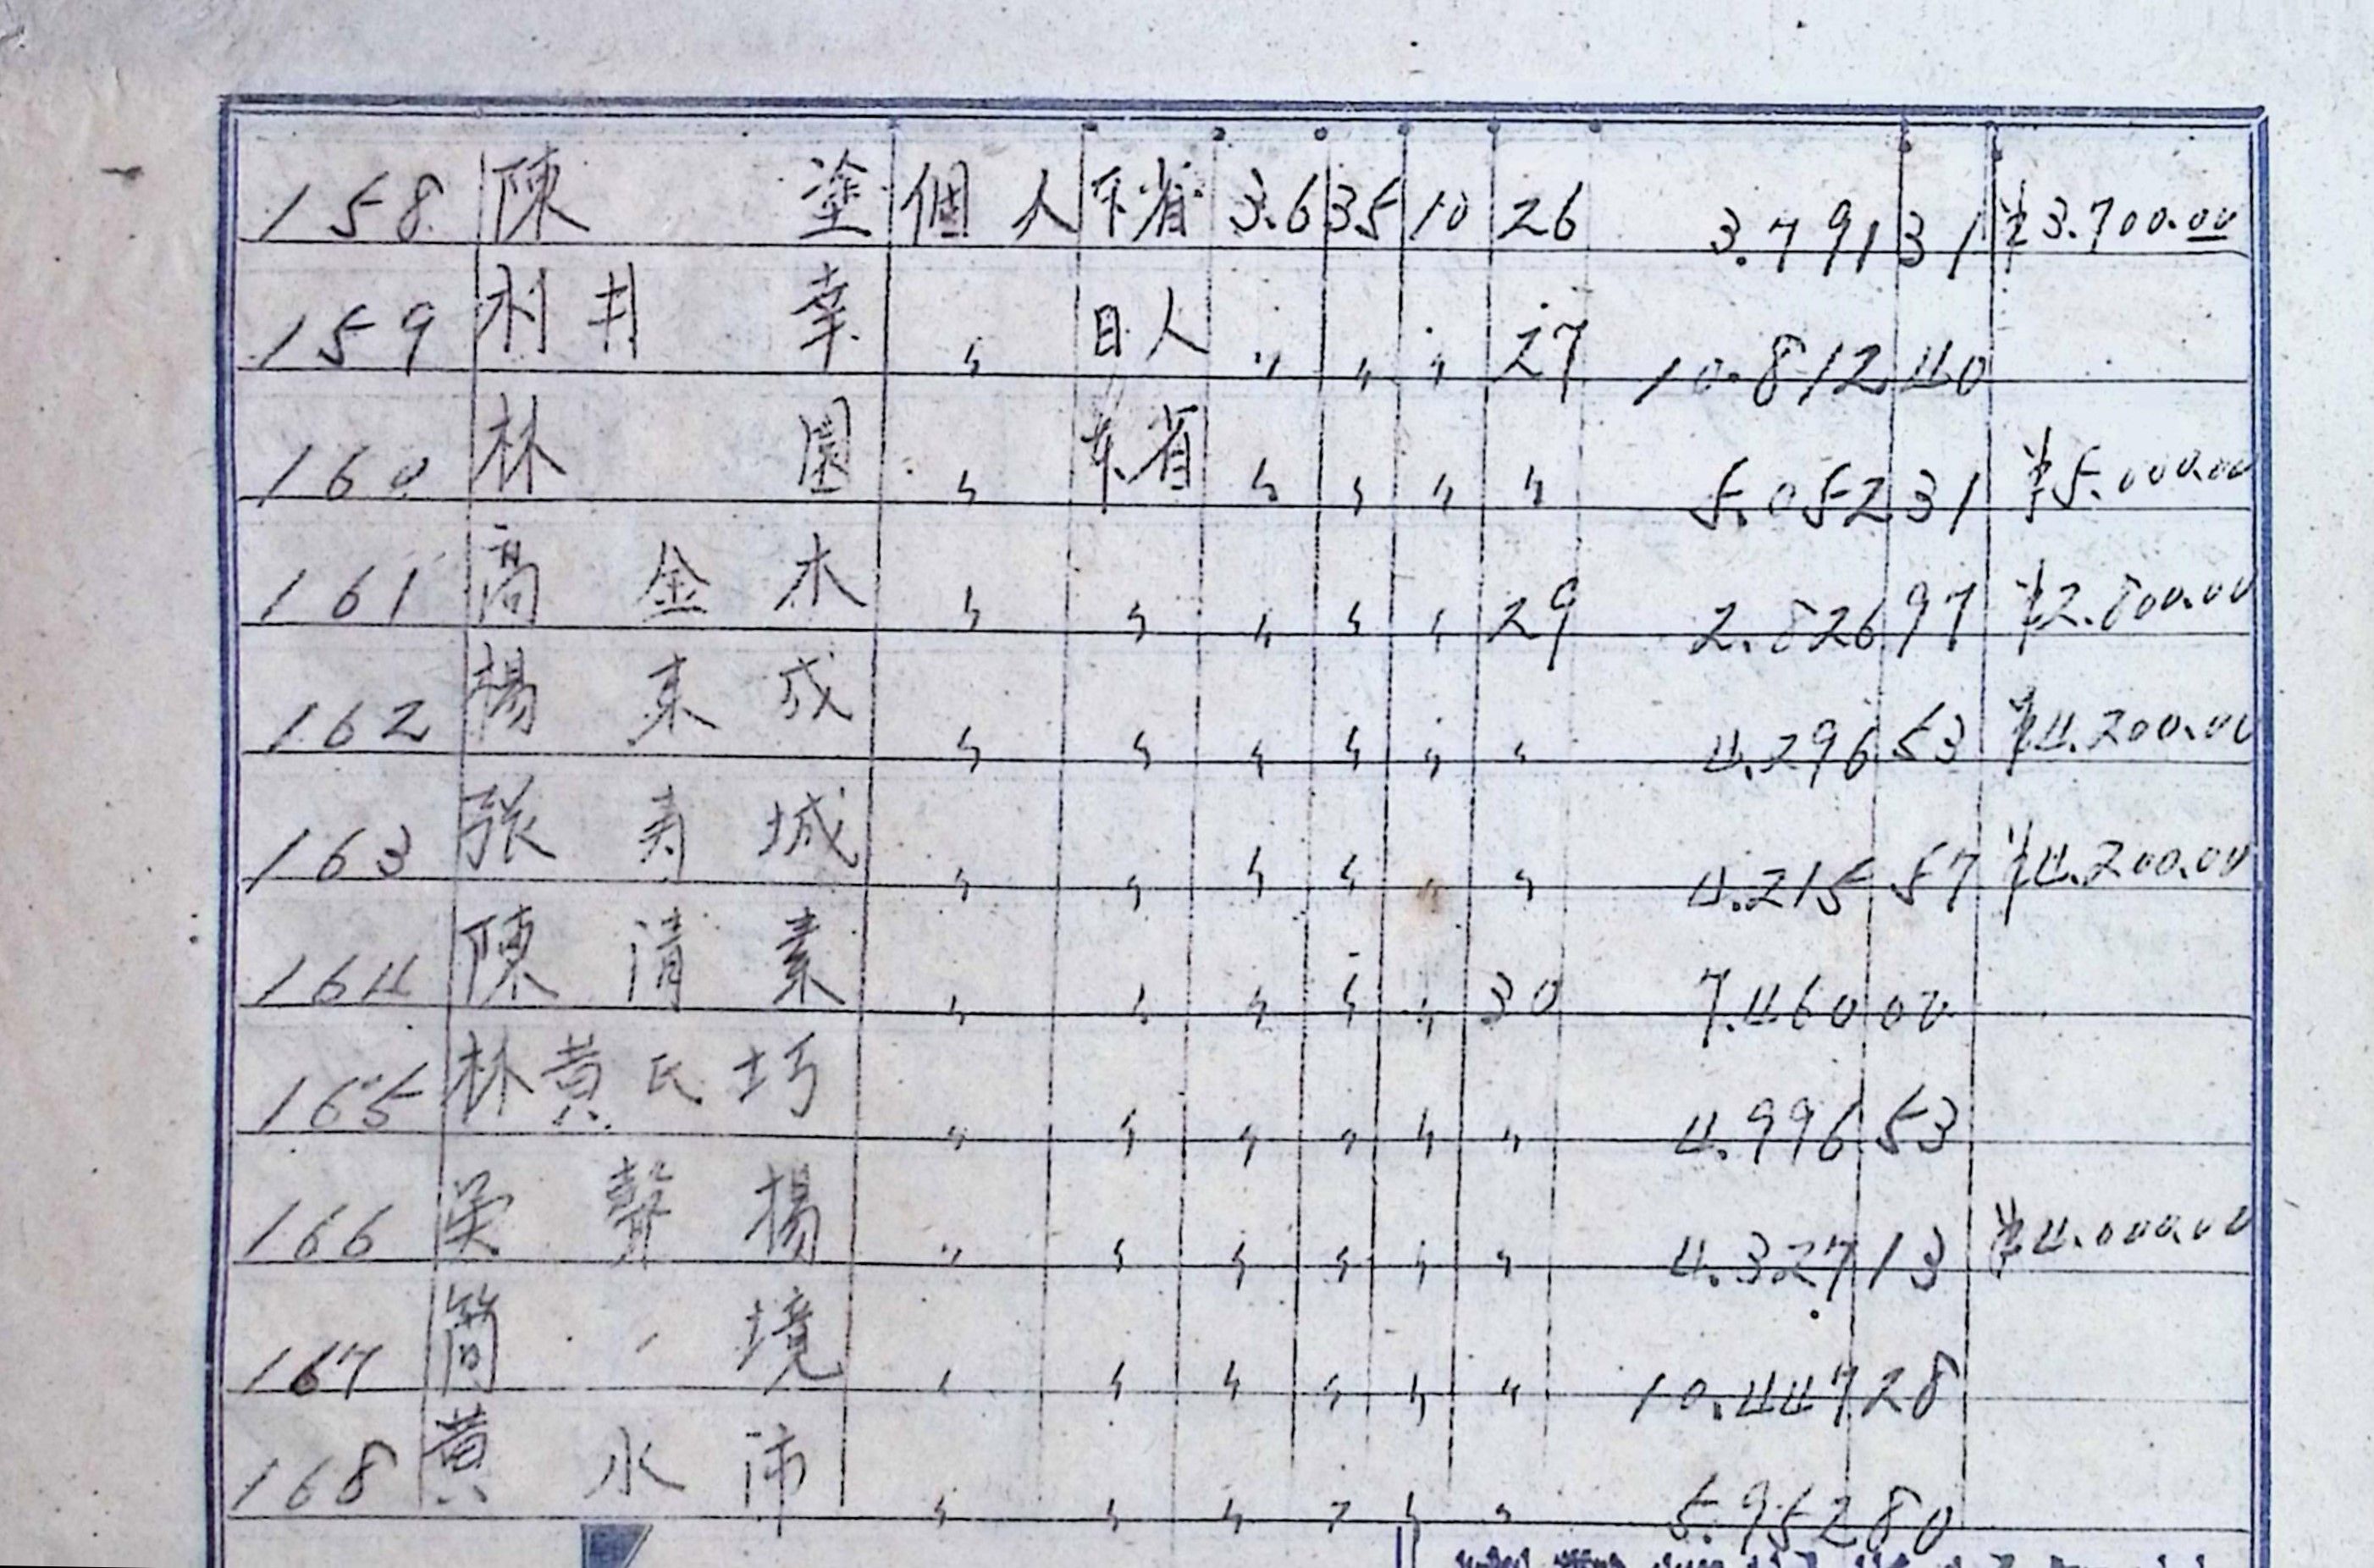 158 陳 塗 個人 本省 3.6 35 10 26 3.791 31 ¥3.700.00
159 利井 幸 〃 日人 〃 〃 〃 27 10.812 40
160 林 園 〃 本省 〃 〃 〃 〃 5.052 31 ¥5.000.00
161 高金木 〃 〃 〃 〃 〃 29 2.826 97 ¥2.800.00
162 楊東成 〃 〃 〃 〃 〃 〃 4.296 53 ¥4.200.00
163 張寿城 〃 〃 〃 〃 〃 〃 4.215 57 ¥4.200.00
164 陳清素 〃 〃 〃 〃 〃 30 7.460 00
165 林黄氏 〃 〃 〃 〃 〃 〃 4.996 53
166 聲揚 〃 〃 〃 〃 〃 〃 4.327 13 ¥4.000.00
167 簡 境 〃 〃 〃 〃 〃 〃 10.447 28
168 黄水沛 〃 〃 〃 〃 〃 〃 5.952 80